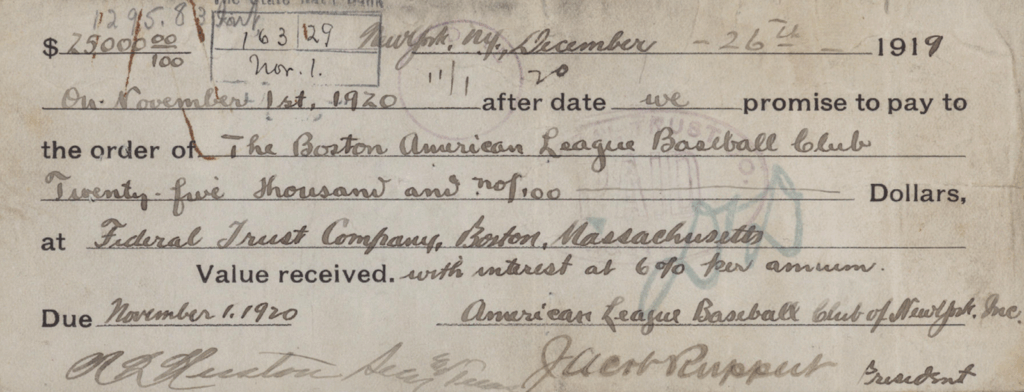 1295.83
$ 25,000 00/100 163 129 New York, N.Y., December - 26th - 1919
Nov. 1. 11/1 20
On November 1st, 1920 after date we promise to pay to
the order of The Boston American League Baseball Club
Twenty-five thousand and no/100 Dollars,
at Federal Trust Company, Boston, Massachusetts
Value received. with interest at 6% per annum.
Due November 1. 1920 American League Baseball Club of New York, Inc.
Huston Jacob Ruppert President